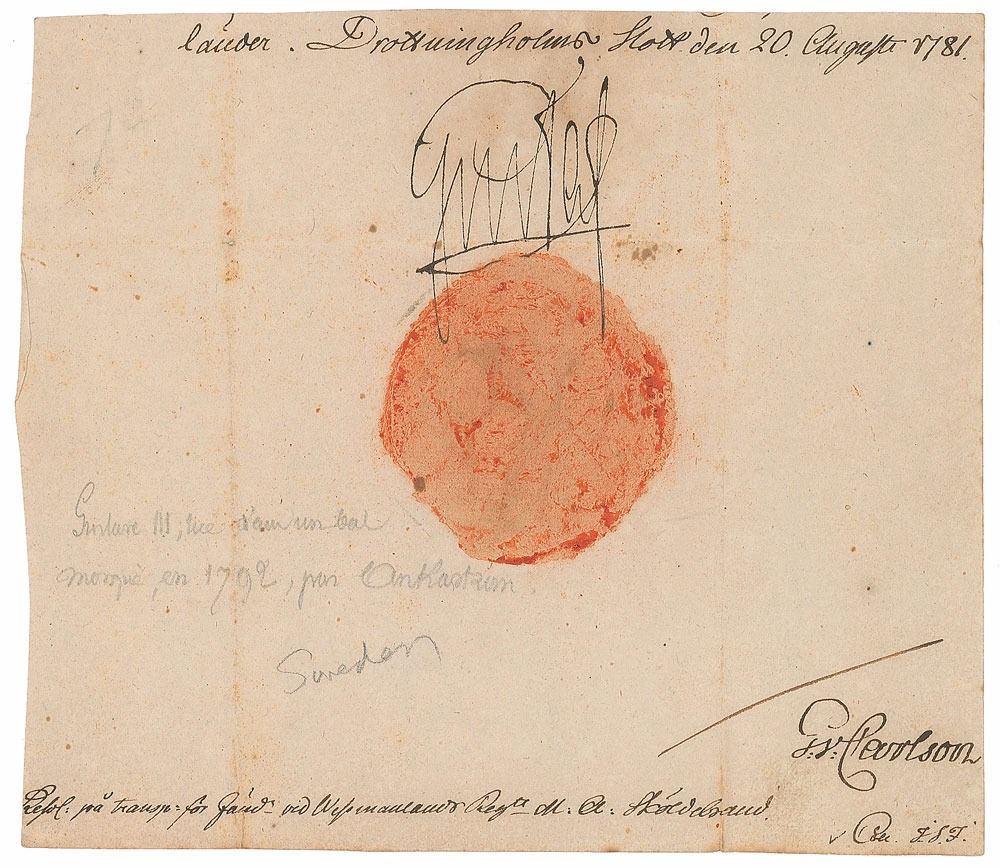 lander. Drottningholms Slott den 20. Augusti 1781.
Gustaf
Gustave III, tué dans un bal
masqué, en 1792, par Ankastrom.
Sweden
G. v. Carlson
Resol: på transp: för Fändr vid Westmanlands Regte M. A: Sköldebrand.